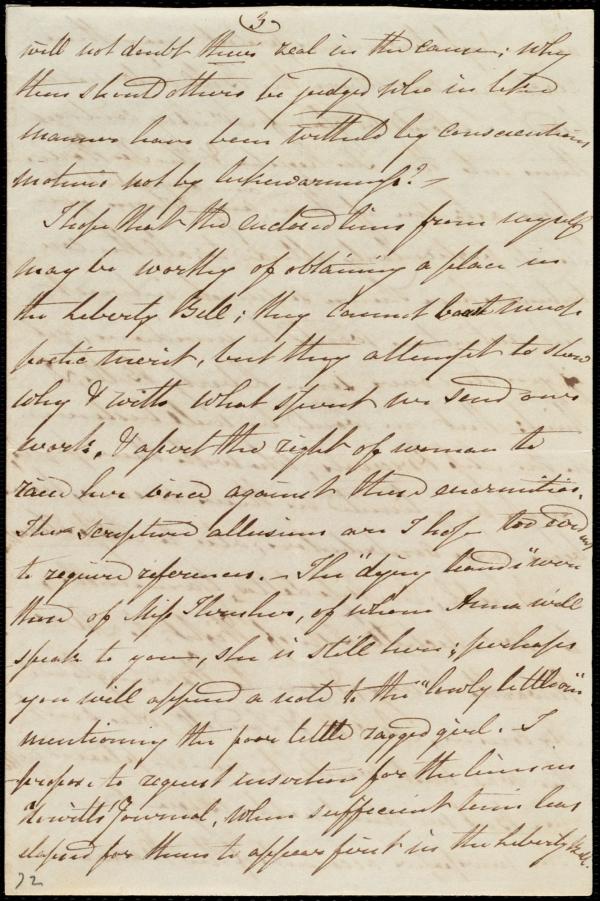 3
will not doubt their zeal in the cause; why
then should others be judged who in like
manner have been withheld by conscientious
motives not by lukewarmness? —
I hope that the enclosed lines from myself
may be worthy of obtaining a place in
the Liberty Bell; they cannot boast much
poetic merit, but they attempt to show
why & with what spirit we send our
work, & assert the right of woman to
raise her voice against these enormities.
The scriptural allusions are I hope too evident
to require references. — The "dying hands" were
those of Miss Thrushes, of whom Anna will
speak to you, she is still here; perhaps
you will append a note to the "lowly little one"
mentioning the poor little ragged girl. I
propose to request insertion for the lines in
Howitt's Journal, when sufficient time has
elapsed for them to appear first in the Liberty Bell.
72